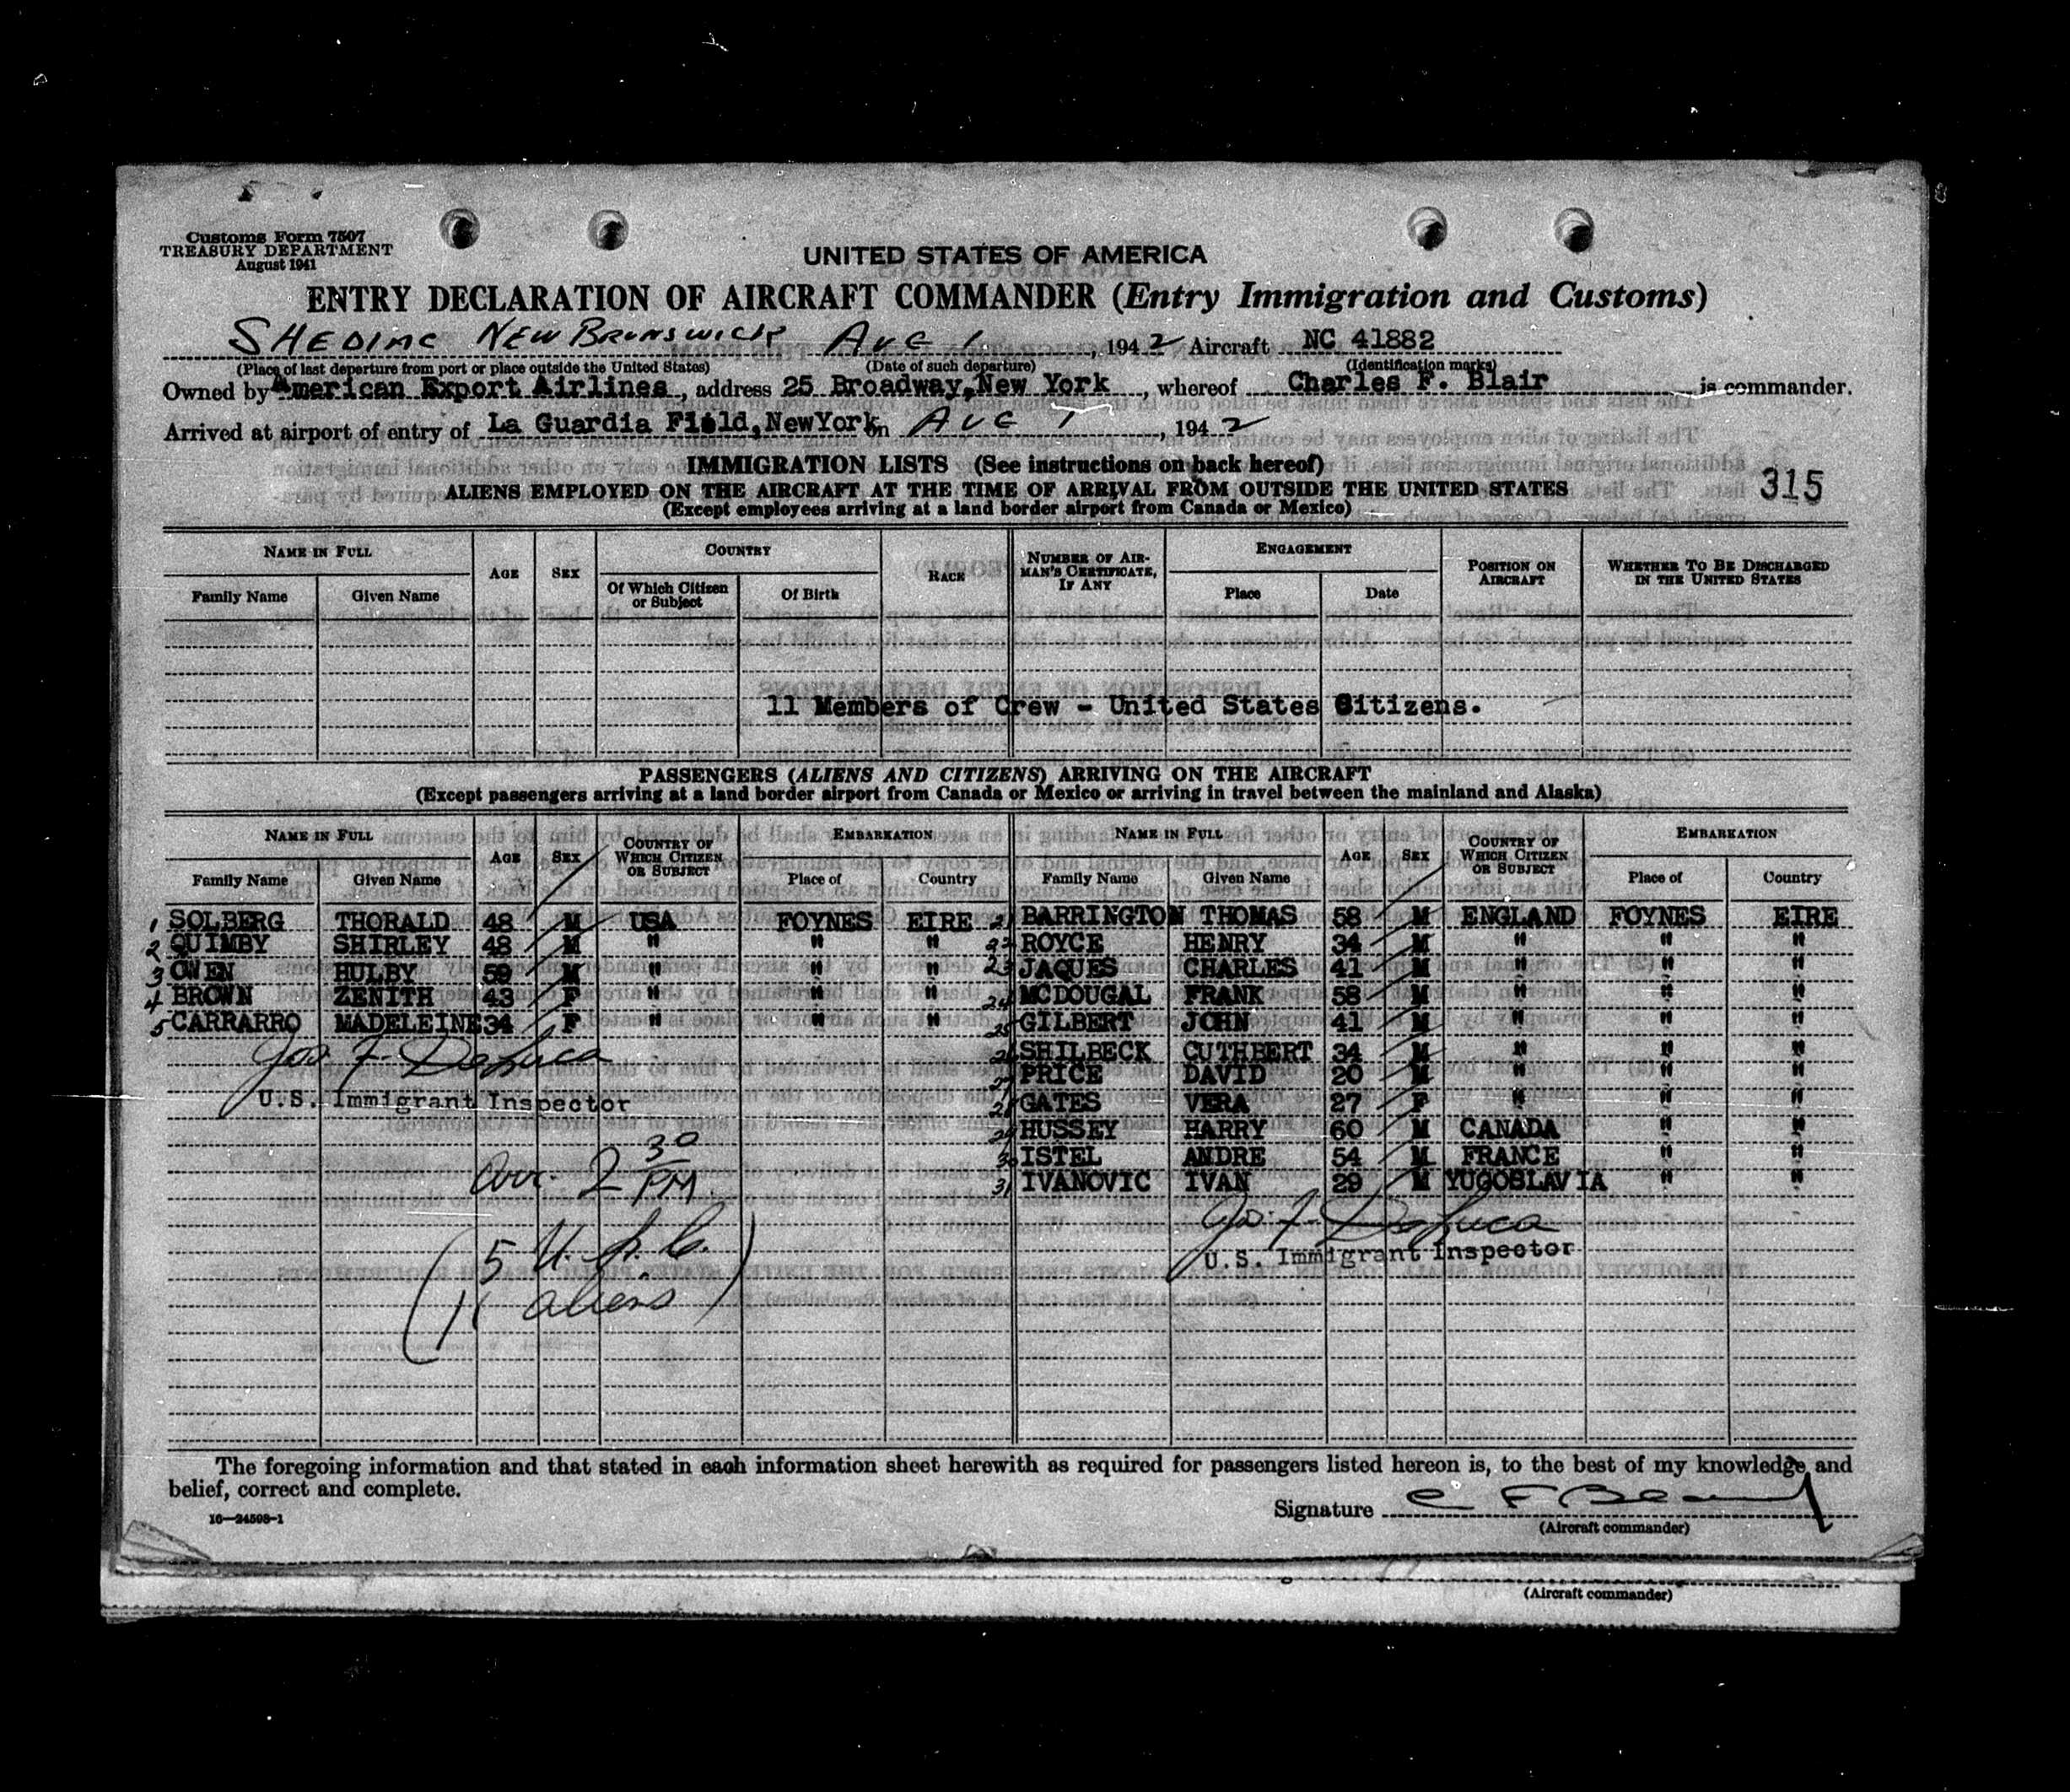 Customs Form 7507
TREASURY DEPARTMENT
August 1941
UNITED STATES OF AMERICA
ENTRY DECLARATION OF AIRCRAFT COMMANDER (Entry Immigration and Customs)
SHEDIAC NEW BRUNSWICK AUG 1, 1942 Aircraft NC 41882
(Place of last departure from port or place outside the United States) (Date of such departure) (Identification marks)
Owned by American Export Airlines, address 25 Broadway, New York, whereof Charles F. Blair is commander.
Arrived at airport of entry of La Guardia Field, NewYork on AUG 1, 1942
IMMIGRATION LISTS (See instructions on back hereof)
315
ALIENS EMPLOYED ON THE AIRCRAFT AT THE TIME OF ARRIVAL FROM OUTSIDE THE UNITED STATES
(Except employees arriving at a land border airport from Canada or Mexico)
NAME IN FULL AGE SEX COUNTRY RACE NUMBER OF AIRMAN'S CERTIFICATE, IF ANY ENGAGEMENT POSITION ON AIRCRAFT WHETHER TO BE DISCHARGED IN THE UNITED STATES
Family Name Given Name Of Which Citizen or Subject Of Birth Place Date
11 Members of Crew - United States Citizens.
PASSENGERS (ALIENS AND CITIZENS) ARRIVING ON THE AIRCRAFT
(Except passengers arriving at a land border airport from Canada or Mexico or arriving in travel between the mainland and Alaska)
NAME IN FULL AGE SEX COUNTRY OF WHICH CITIZEN OR SUBJECT EMBARKATION NAME IN FULL AGE SEX COUNTRY OF WHICH CITIZEN OR SUBJECT EMBARKATION
Family Name Given Name Place of Country Family Name Given Name Place of Country
1 SOLBERG THORALD 48 M USA FOYNES EIRE 21 BARRINGTON THOMAS 58 M ENGLAND FOYNES EIRE
2 QUIMBY SHIRLEY 48 M " " " 22 ROYCE HENRY 34 M " " "
3 OWEN HULBY 59 M " " " 23 JAQUES CHARLES 41 M " " "
4 BROWN ZENITH 43 F " " " 24 MCDOUGAL FRANK 58 M " " "
5 CARRARRO MADELEINE 34 F " " " 25 GILBERT JOHN 41 M " " "
26 SHILBECK CUTHBERT 34 M " " "
27 PRICE DAVID 20 M " " "
28 GATES VERA 27 F " " "
29 HUSSEY HARRY 60 M CANADA " "
30 ISTEL ANDRE 54 M FRANCE " "
31 IVANOVIC IVAN 29 M YUGOSLAVIA " "
Jos. F. DeLuca
U.S. Immigrant Inspector
arr. 2 30 PM.
(5 U.S.C.
11 aliens)
Jos. F. DeLuca
U.S. Immigrant Inspector
The foregoing information and that stated in each information sheet herewith as required for passengers listed hereon is, to the best of my knowledge and
belief, correct and complete.
Signature C F Blair
(Aircraft commander)
16—24598-1
(Aircraft commander)